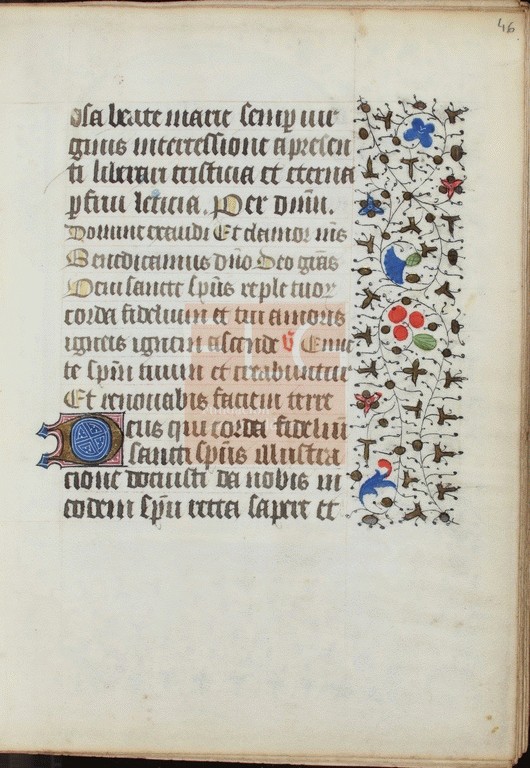 46
osa beate marie semp vir
ginis intercessione a presen
ti liberari tristicia et eterna
pfrui leticia. Per dnm.
Domine exaudi Et clamor ms
Benedicamus dno Deo gras
Veni sancte spus reple tuor
corda fidelium et tui amoris
igneis ignem ascende V Emit
te spm tuum et creabuntur
Et renovabis faciem terre
Deus qui corda fidelium
sancti spus illustra
cione docuisti da nobis in
eodem spu recta sapere et